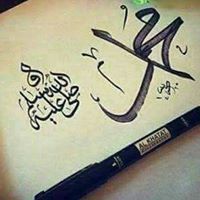 محمد
صلى الله عليه وسلم
AL KHATAT